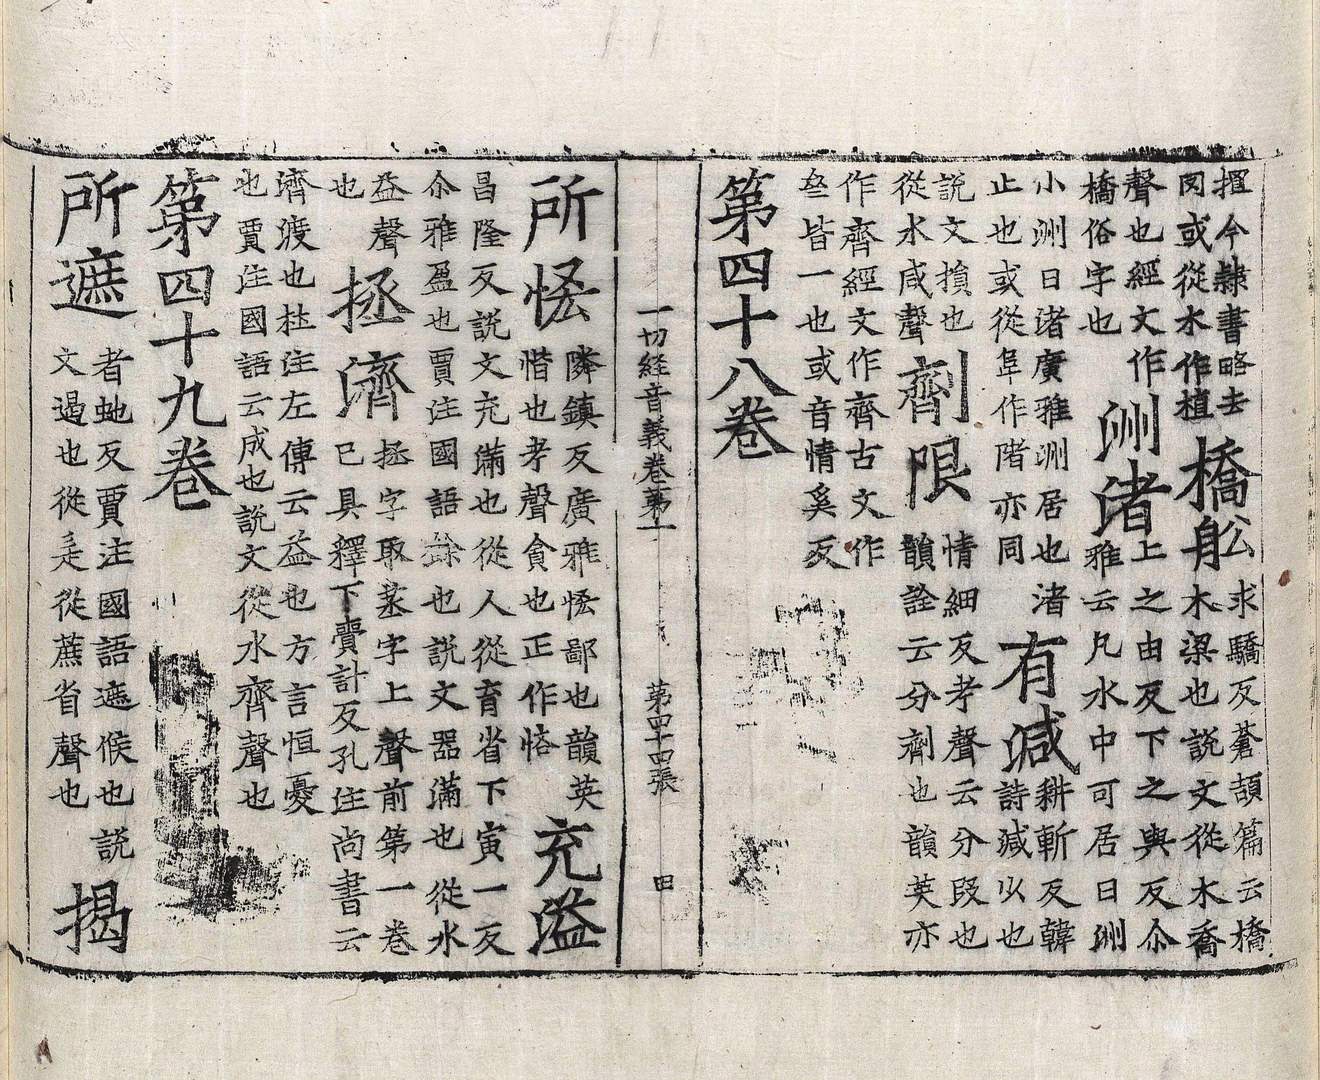 揠今隸書略去
罔或從木作植
橋舩
求驕反蒼頡篇云橋
木梁也說文從木喬
聲也經文作
橋俗字也
洲渚
上之由反下之與反尒
雅云凡水中可居曰洲
小洲曰渚廣雅洲居也渚
止也或從阜作陼亦同
有減
耕斬反韓
詩減少也
說文損也
從水咸聲
劑限
情細反考聲云分段也
韻詮云分劑也韻英亦
作齊經文作齊古文作
亝皆一也或音情奚反
第四十八卷
一切経音義卷苐十一 苐四十四張 田
所恡
隣鎮反廣雅恡鄙也韻英
惜也考聲貪也正作悋
充溢
昌隆反說文充滿也從人從育省下寅一反
尒雅盈也賈注國語餘也說文器滿也從水
益聲
也
拯濟
拯字取蒸字上聲前第一卷
已具釋下賷計反孔注尚書云
濟渡也杜注左傳云益也方言恒憂
也賈注國語云成也說文從水齊聲也
第四十九卷
所遮
者虵反賈注國語遮候也說
文遏也從辵從蔗省聲也
揭